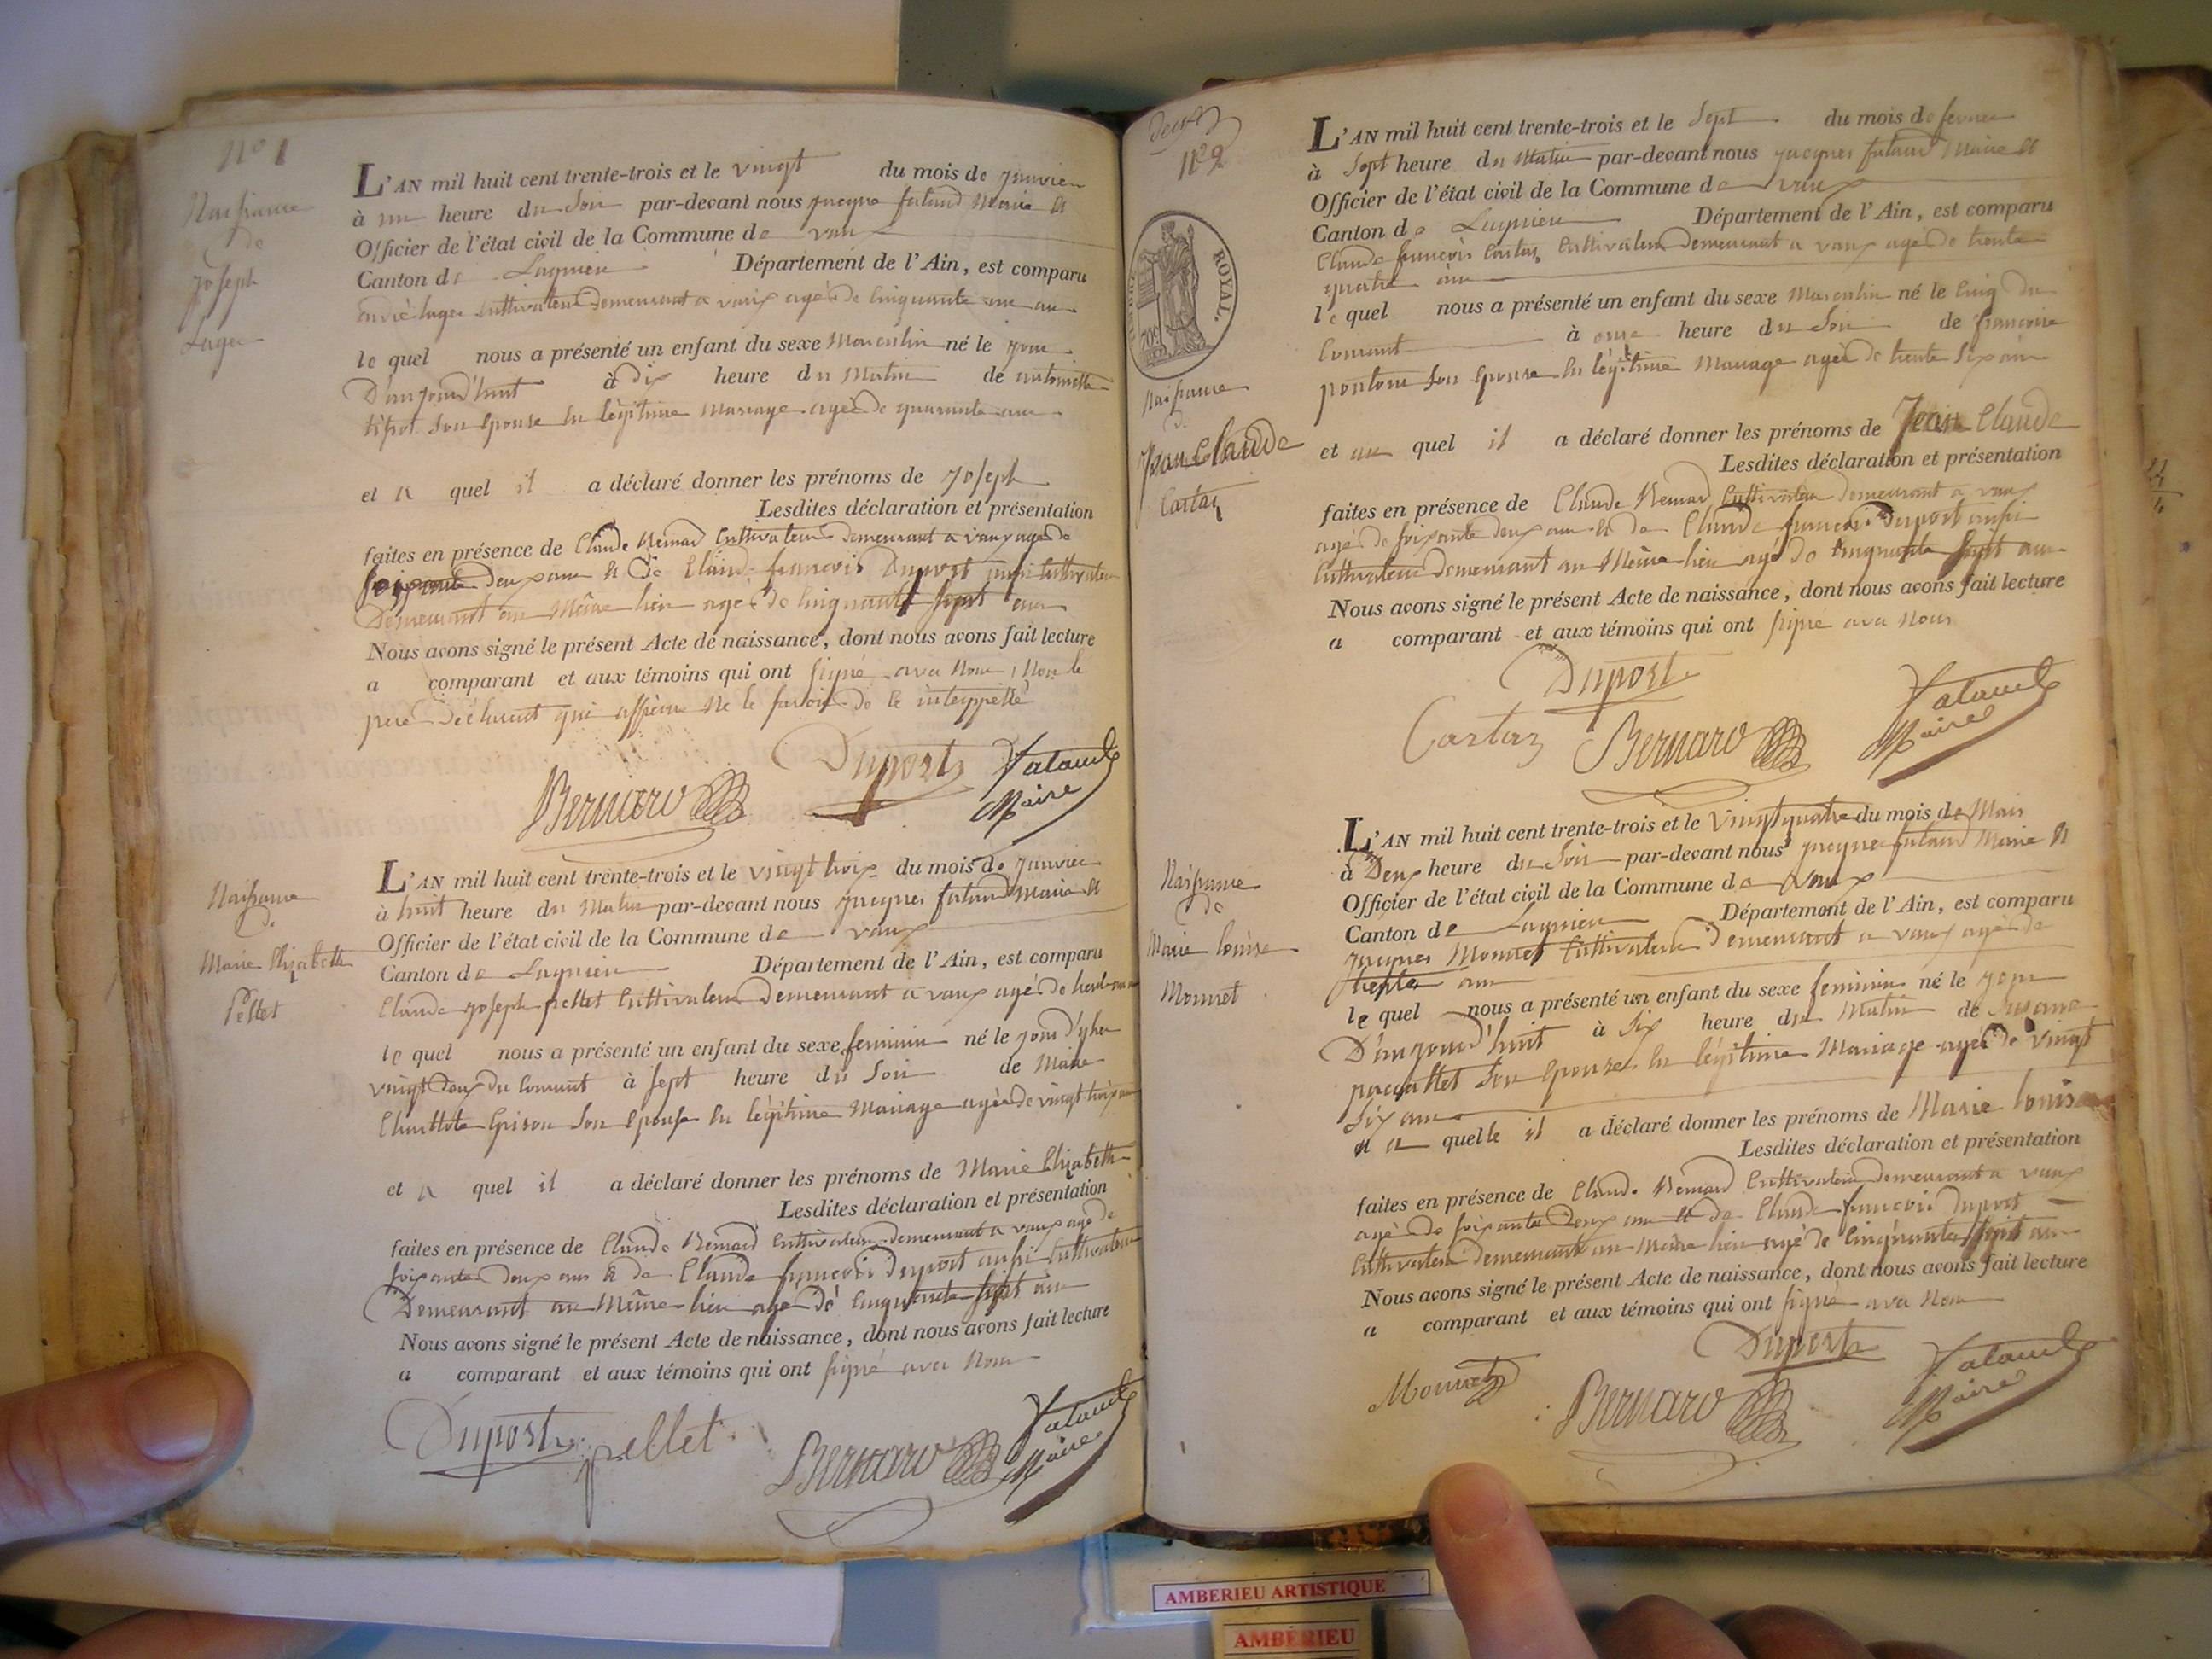 No 1
Naissance
de
Joseph
Luger
L'AN mil huit cent trente-trois et le vingt du mois de janvier
à une heure du soir par-devant nous jacques fataud Maire et
Officier de l'état civil de la Commune de vaux
Canton de Lagnieu Département de l'Ain, est comparu
cultivateur demeurant a vaux agé de cinquante un ans
le quel nous a présenté un enfant du sexe Masculin né le jour
D'aujourd'huit à dix heure du Matin de antoinette
son epouse en légitime mariage agée de quarante ans
et a quel il a déclaré donner les prénoms de joseph
Lesdites déclaration et présentation
faites en présence de Claude Bernard Cultivateur demeurant a vaux agé de
soixante deux ans et de Claude françois Duport aussi Cultivateur
Demeurant au Même lieu agé de cinquante sept ans
Nous avons signé le présent Acte de naissance, dont nous avons fait lecture
a comparant et aux témoins qui ont signé avec Nous, Non le
pere déclarant qui affirme Ne le savoir de ce interppellé
Duport
Bernard
Fataud
Maire
Naissance
de
Marie Elizabeth
Pellet
L'AN mil huit cent trente-trois et le vingt trois du mois de janvier
à huit heure du Matin par-devant nous jacques fataud Maire et
Officier de l'état civil de la Commune de vaux
Canton de Lagnieu Département de l'Ain, est comparu
Claude joseph pellet Cultivateur Demeurant a vaux agé de
le quel nous a présenté un enfant du sexe feminin né le jour d'yher
vingt deux du Courant à sept heure du Soir de Marie
Charlotte Grison Son Epouse en légitime Mariage agée de vingt trois ans
et a quel il a déclaré donner les prénoms de Marie Elizabeth
Lesdites déclaration et présentation
faites en présence de Claude Bernard Cultivateur demeurant a vaux agé de
soixante deux ans et de Claude françois duport aussi Cultivateur
Demeurant au Même lieu agé de cinquante sept ans
Nous avons signé le présent Acte de naissance, dont nous avons fait lecture
a comparant et aux témoins qui ont signé avec Nous
Duport pellet
Bernard
Fataud
Maire
No 2
ROYAL.
Naissance
de
Jean Claude
Castaz
L'AN mil huit cent trente-trois et le Sept du mois de fevrier
à Sept heure du Matin par-devant nous jacques fataud Maire et
Officier de l'état civil de la Commune de vaux
Canton de Lagnieu Département de l'Ain, est comparu
Claude françois Castaz Cultivateur Demeurant a vaux agé de trente
quatre ans
le quel nous a présenté un enfant du sexe Masculin né le Cinq du
Courant à onze heure du Soir de francoise
son Epouse en légitime Mariage agée de trente six ans
et au quel il a déclaré donner les prénoms de Jean Claude
Lesdites déclaration et présentation
faites en présence de Claude Bernard Cultivateur demeurant a vaux
agé de soixante deux ans et de Claude françois duport aussi
Cultivateur demeurant au Même lieu agé de Cinquante sept ans
Nous avons signé le présent Acte de naissance, dont nous avons fait lecture
a comparant et aux témoins qui ont signé avec Nous
Duport
Castaz Bernard
Fataud
Maire
Naissance
de
Marie Louise
Monnet
L'AN mil huit cent trente-trois et le Vingt quatre du mois de Mars
à Deux heure du Soir par-devant nous jacques fataud Maire et
Officier de l'état civil de la Commune de vaux
Canton de Lagnieu Département de l'Ain, est comparu
jacques Monnet Cultivateur demeurant a vaux agé de
trente ans
le quel nous a présenté un enfant du sexe feminin né le jour
D'aujourd'huit à Six heure du Matin de Susanne
pacallet Son Epouse en légitime Mariage agée de vingt
six ans
et a quelle il a déclaré donner les prénoms de Marie Louise
Lesdites déclaration et présentation
faites en présence de Claude Bernard Cultivateur demeurant a vaux
agé de soixante deux ans et de Claude francois duport
Cultivateur demeurant au Même lieu agé de cinquante sept ans
Nous avons signé le présent Acte de naissance, dont nous avons fait lecture
a comparant et aux témoins qui ont signé avec Nous
Duport
Monnet Bernard
Fataud
Maire
AMBERIEU ARTISTIQUE
AMBERIEU